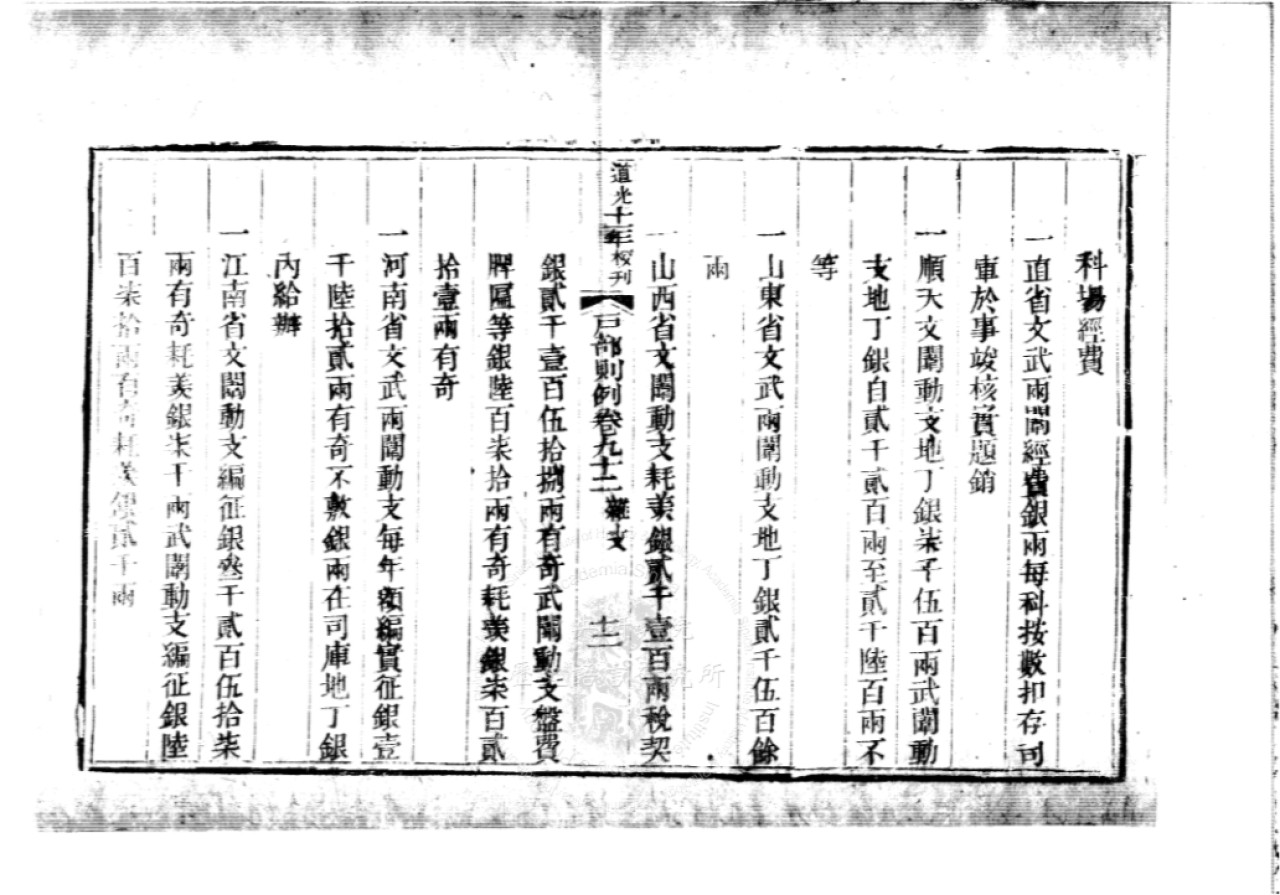 科場經費
一直省文武兩闈經費銀兩每科按數扣存司
庫於事竣核實題銷
一順天文闈動支地丁銀柒千伍百兩武闈動
支地丁銀自貳千貳百兩至貳千陸百兩不
等
一山東省文武兩闈動支地丁銀貳千伍百餘
兩
一山西省文闈動支耗羡銀貳千壹百兩稅契
道光十一年校刊
戶部則例卷九十二 雜支 十二
銀貳千壹百伍拾捌兩有奇武闈動支盤費
牌匾等銀陸百柒拾兩有奇耗羡銀柒百貳
拾壹兩有奇
一河南省文武兩闈動支每年額編實征銀壹
千陸拾貳兩有奇不敷銀兩在司庫地丁銀
內給辦
一江南省文闈動支編征銀叁千貳百伍拾柒
兩有奇耗羡銀柒千兩武闈動支編征銀陸
百柒拾兩有奇耗羡銀貳千兩